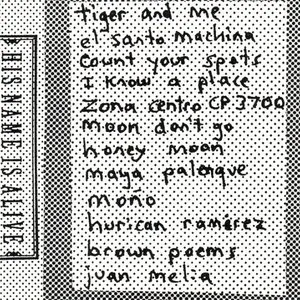 HIS NAME IS ALIVE
tiger and me
el santo machina
count your spots
I know a place
Zona centro CP.3700
moon don't go
honey moon
maya palenque
moño
hurican ramirez
brown poems
juan melia